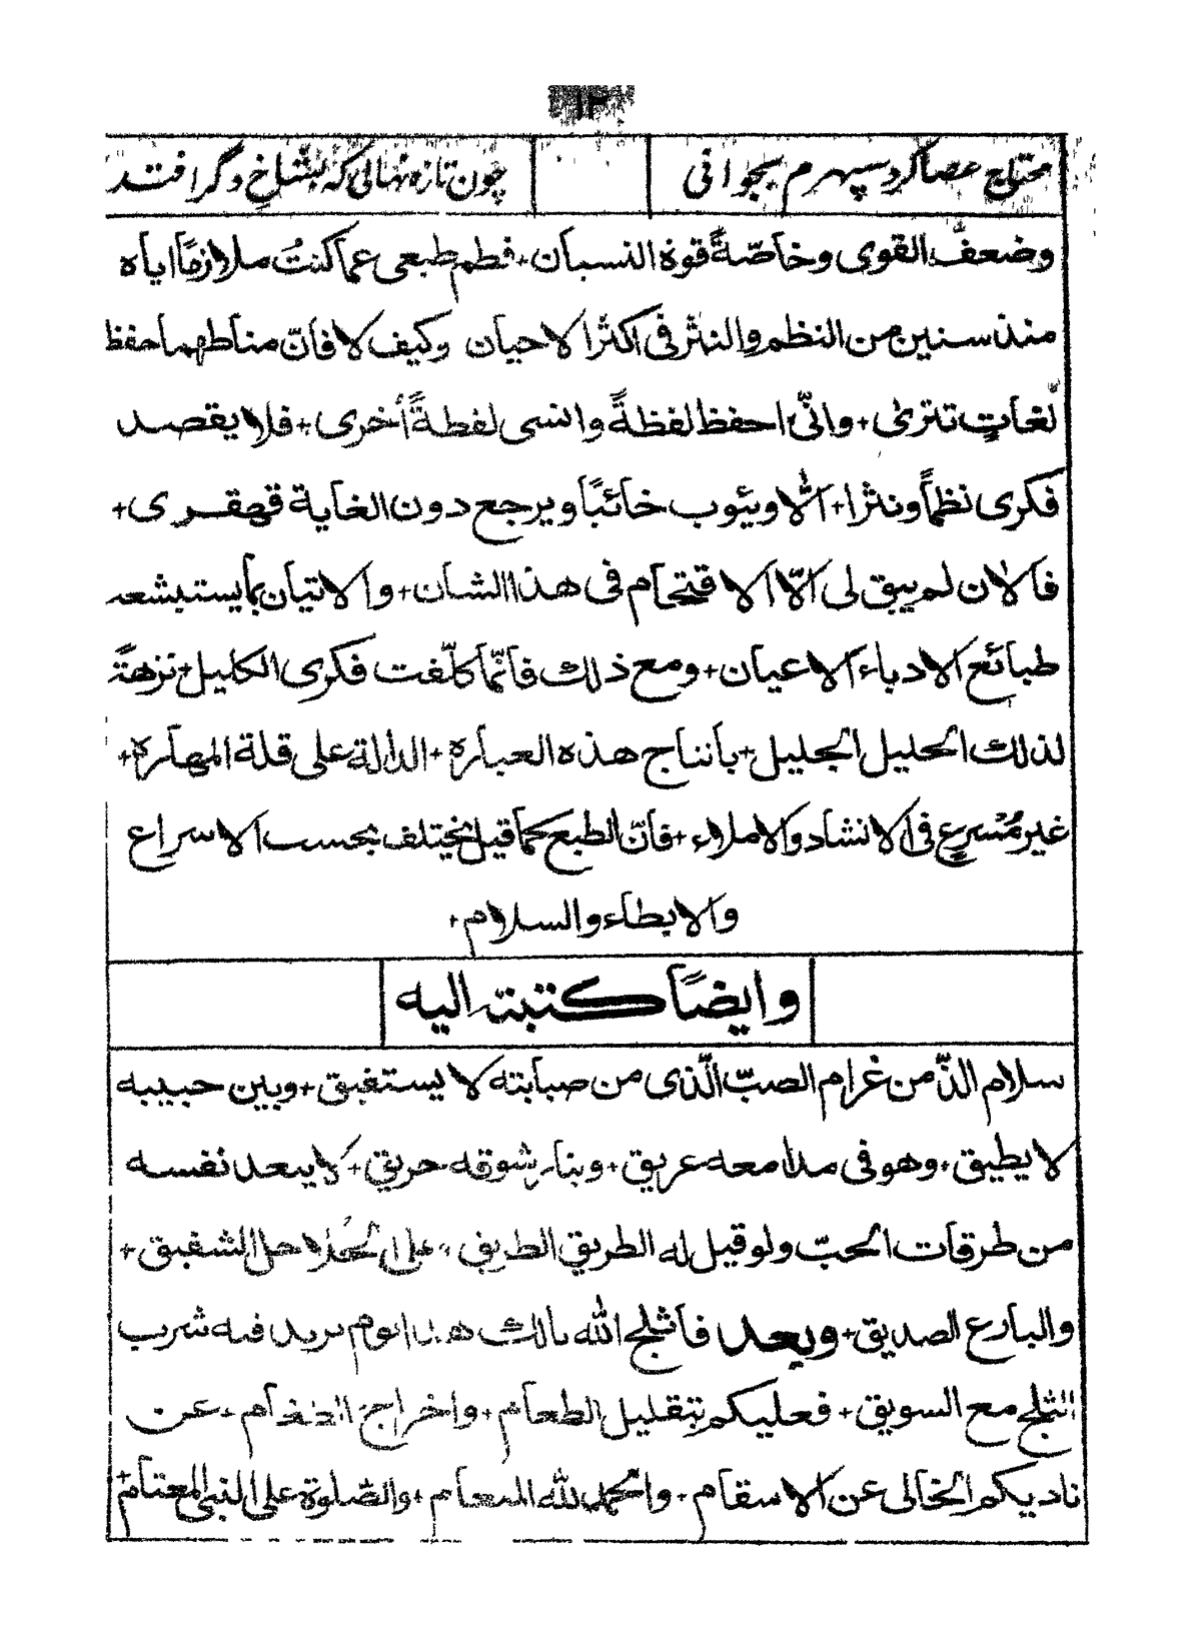 ١٣
محتاج عصا کرد سپهرم بجوانی چون تازه نهالی که بشاخ و گر افتد
وضعف القوى وخاصّةً قوة النسيان + فطم طبعى عما كنتُ ملازمًا اياه
منذ سنين من النظم والنثر فى اكثر الاحيان وكيف لا فانّ مناطهما حفظ
لغاتٍ تترىٰ + وانّى احفظ لفظةً وانسى لفظةً أخرى + فلا يقصد
فكرى نظماً ونثرا + الّا ويئوب خائبًا ويرجع دون الغاية قهقرى +
فالاٰن لم يبق لى الّا الاقتحام فى هذا الشان + والاتيان بما يستبشعه
طبائع الادباء الاعيان + ومع ذلك فانّما كلّفت فكرى الكليل + نزهةً
لذلك الخليل الجليل + بانتاج هذه العبارة + الدالة على قلة المهارة +
غير مُسْرعٍ فى الانشاد والاملاء + فانّ الطبع كما قيل يختلف بحسب الاسراع
والابطاء والسلام +
وايضًا كتبت اليه
سلام الذّ من غرام الصبّ الّذى من صبابته لا يستفيق + وبين حبيبه
لا يطيق + وهو فى مدامعه غريق + وبنار شوقه حريق + لا يبعد نفسه
من طرقات الحبّ ولو قيل له الطريق الطريق + على الخُلاحل الشفيق +
والبارع الصديق + وبعد فاثلج الله بالك هذا اليوم نريد فيه شرب
الثلج مع السويق + فعليكم بتقليل الطعام + واخراج الخدام + عن
ناديكم الخالى عن الاسقام + والحمد لله المنعام + والصّلوة على النبى المعتام +